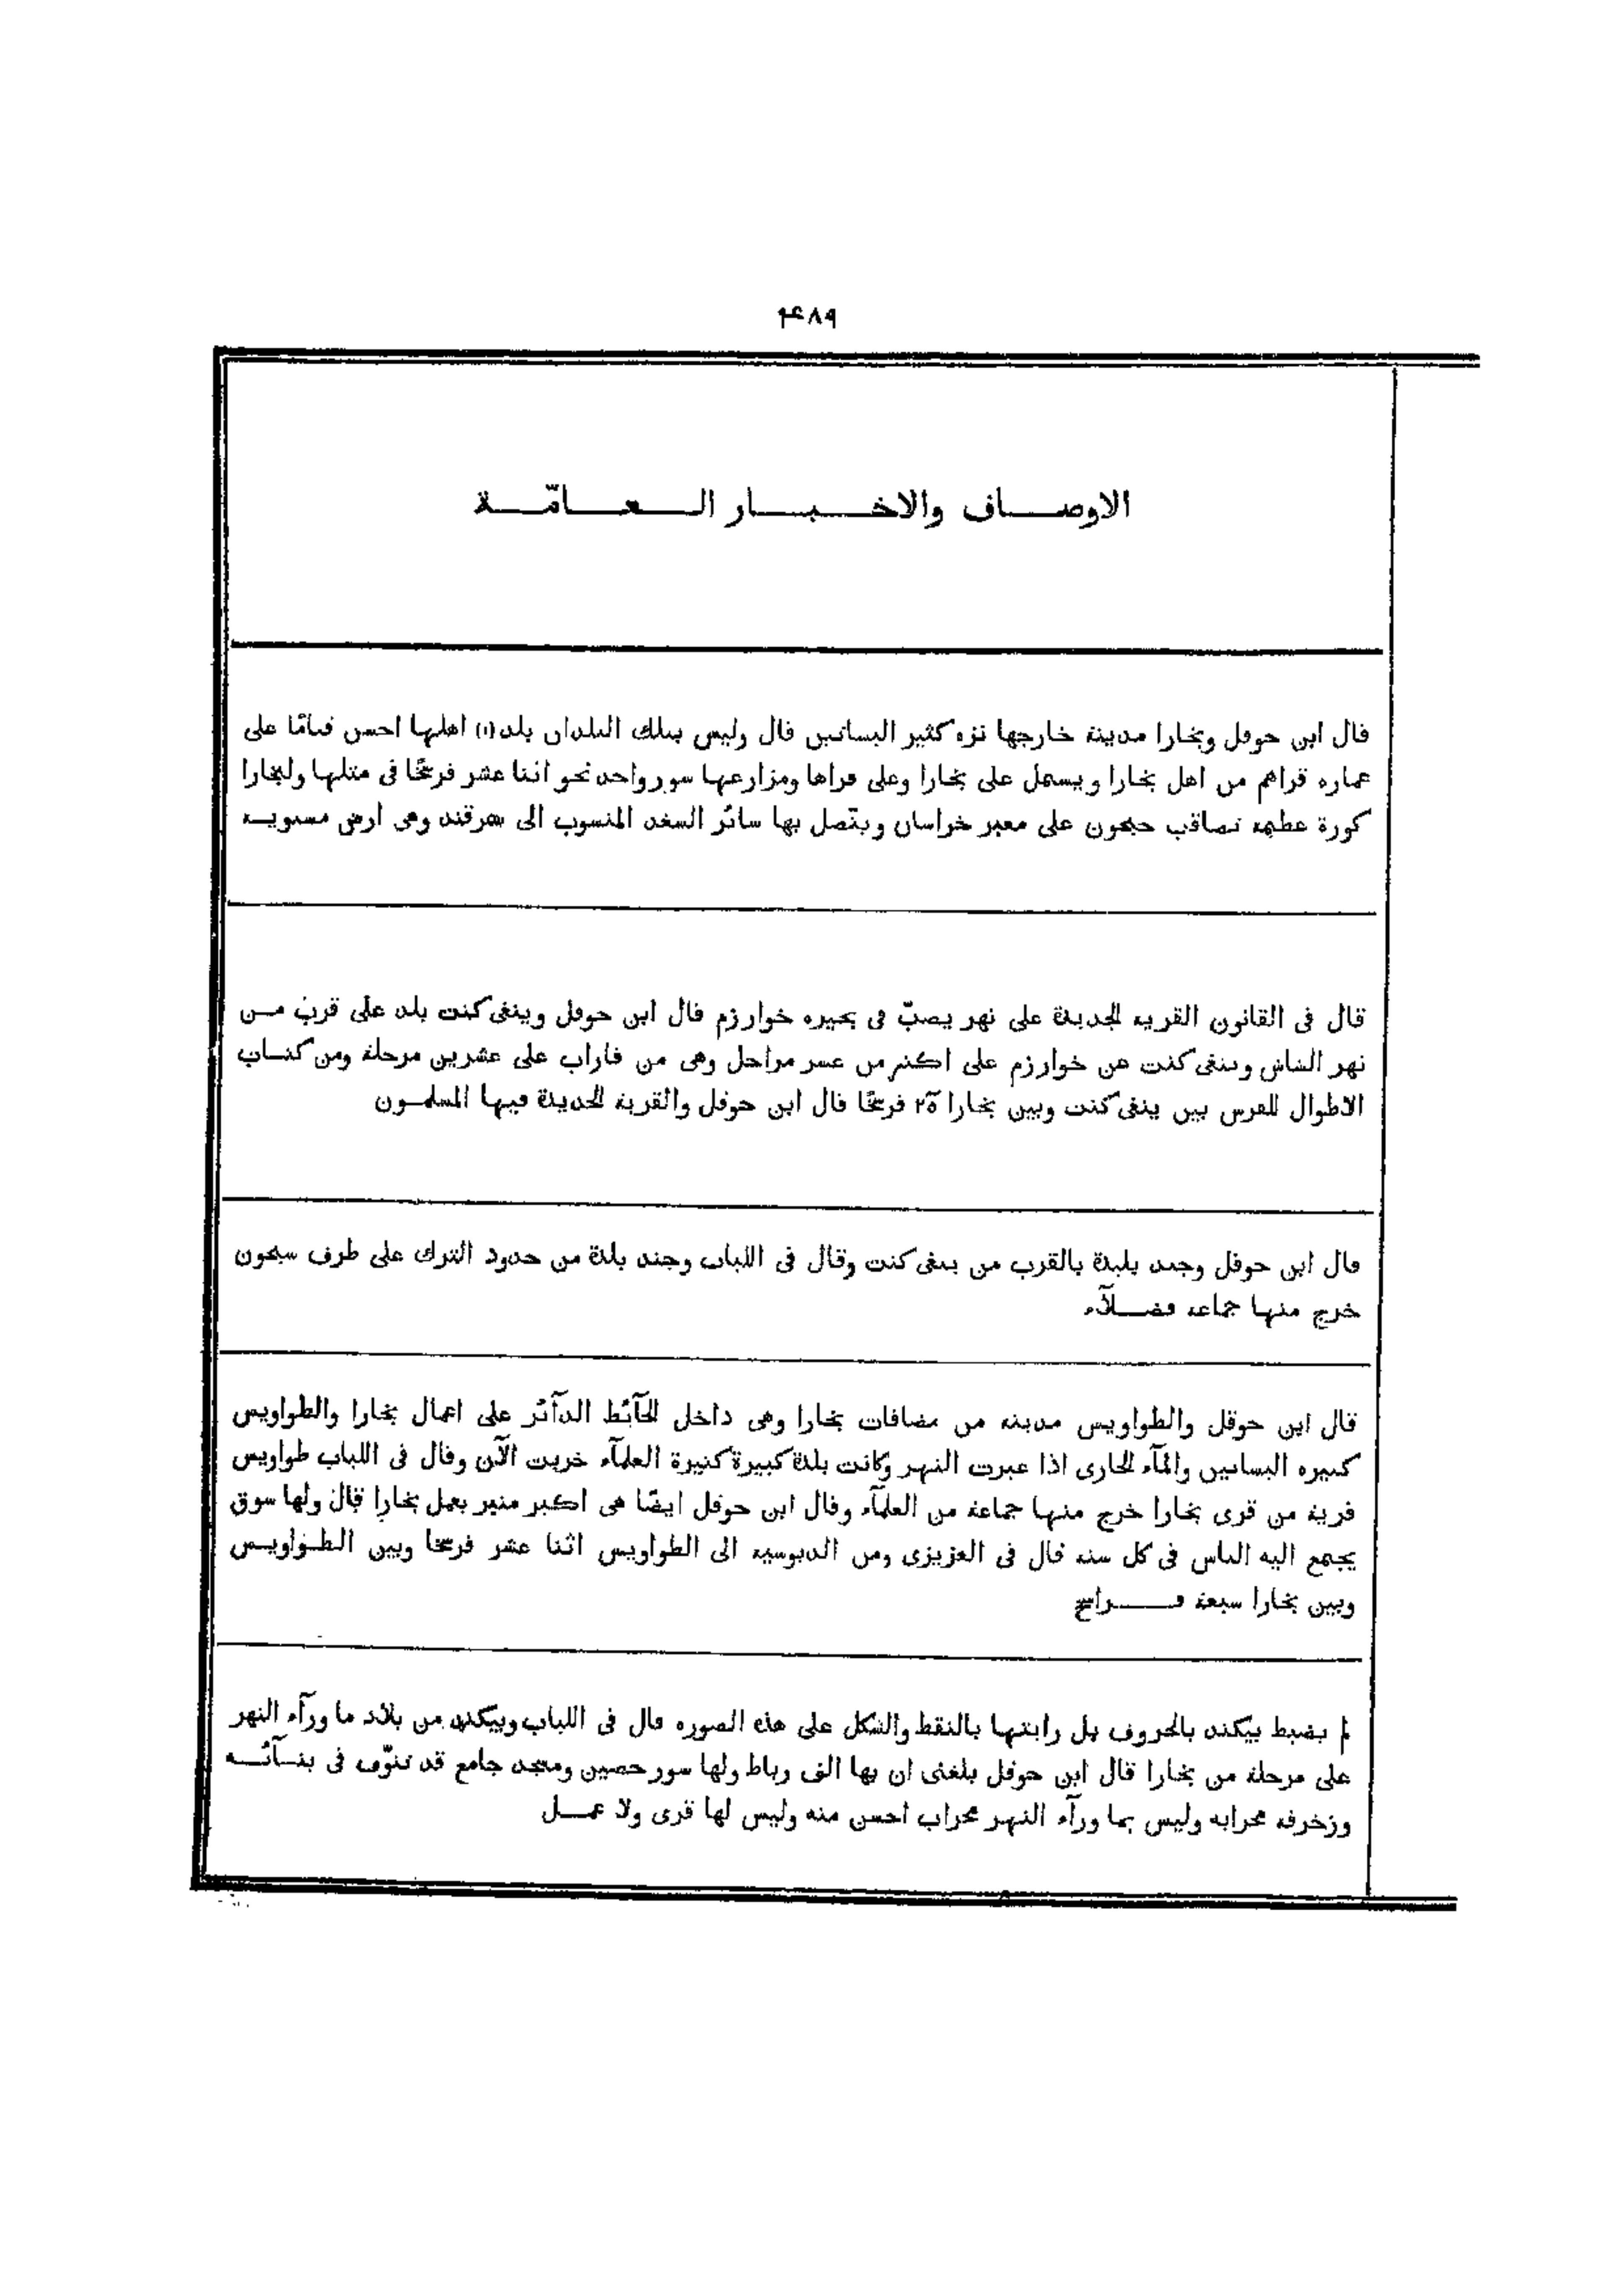 ۴۸۹
الاوصاف والاخبار العامّة
قال ابن حوقل وبخارا مدينة خارجها نزه كثير البساتين قال وليس بتلك البلدان بلد (١) اهلها احسن قيامًا على
عمارة قراهم من اهل بخارا ويشتمل على بخارا وعلى قراها ومزارعها سور واحد نحو اثنا عشر فرسخًا فى مثلها ولبخارا
كورة عظيمة تصاقب جيحون على معبر خراسان ويتّصل بها سائر السغد المنسوب الى سمرقند وهى ارض مستوية
قال فى القانون القرية الجديدة على نهر يصبّ فى بحيرة خوارزم قال ابن حوقل وينغى كنت بلد على قرب من
نهر الشاش وينغى كنت عن خوارزم على اكثر من عشر مراحل وهى من فاراب على عشرين مرحلة ومن كتاب
الاطوال للفرس بين ينغى كنت وبين بخارا ٢٥ فرسخًا قال ابن حوقل والقرية الحديدة فيها المسلمون
قال ابن حوقل وجند بليدة بالقرب من ينغى كنت وقال فى اللباب وجند بلدة من حدود الترك على طرف سيحون
خرج منها جماعة فضلآء
قال ابن حوقل والطواويس مدينة من مضافات بخارا وهى داخل الحآئط الدآئر على اعمال بخارا والطواويس
كثيرة البساتين والمآء الجارى اذا عبرت النهر وكانت بلدة كبيرة كثيرة العلمآء خربت الآن وقال فى اللباب طواويس
قرية من قرى بخارا خرج منها جماعة من العلمآء وقال ابن حوقل ايضًا هى اكبر منبر بعمل بخارا قال ولها سوق
يجتمع اليه الناس فى كل سنة قال فى العزيزى ومن الدبوسية الى الطواويس اثنا عشر فرسخا وبين الطواويس
وبين بخارا سبعة فراسخ
لم يضبط بيكند بالحروف بل رايتها بالنقط والشكل على هذه الصورة قال فى اللباب وبيكند من بلاد ما ورآء النهر
على مرحلة من بخارا قال ابن حوقل بلغنى ان بها الف رباط ولها سور حصين ومسجد جامع قد تنوّق فى بنآئه
وزخرفة محرابه وليس بما ورآء النهر محراب احسن منه وليس لها قرى ولا عمل